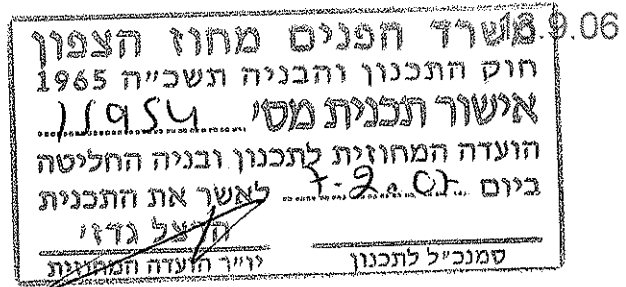 13.9.06
משרד הפנים מחוז הצפון
חוק התכנון והבניה תשכ״ה 1965
אישור תכנית מס׳ 11954
הועדה המחוזית לתכנון ובניה החליטה
ביום 7.2.07 לאשר את התכנית
הרצל גדזי
סמנכ״ל לתכנון
יו״ר הועדה המחוזית